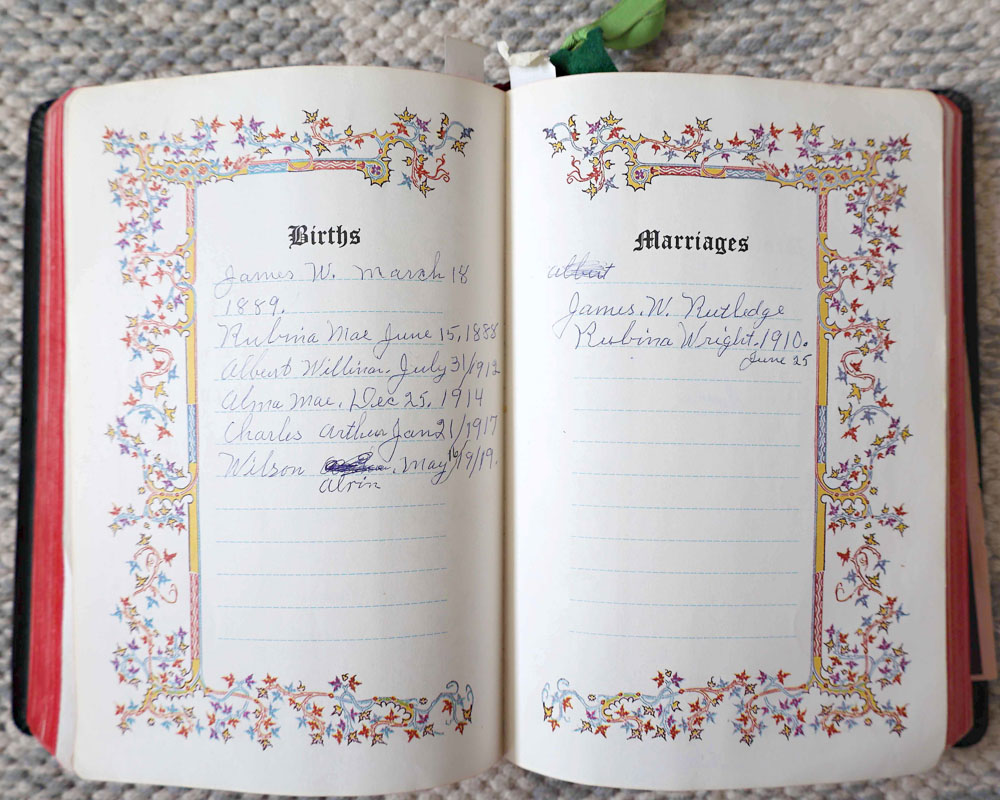 Births
James W. March 18
1889.
Rubina Mae June 15, 1888
Albert Willmar. July 31/1912
Alma Mae. Dec 25, 1914
Charles Arthur Jan 21/1917
Wilson May 16/19/19.
Alvin
Marriages
Albert
James. W. Rutledge
Rubina Wright. 1910.
June 25